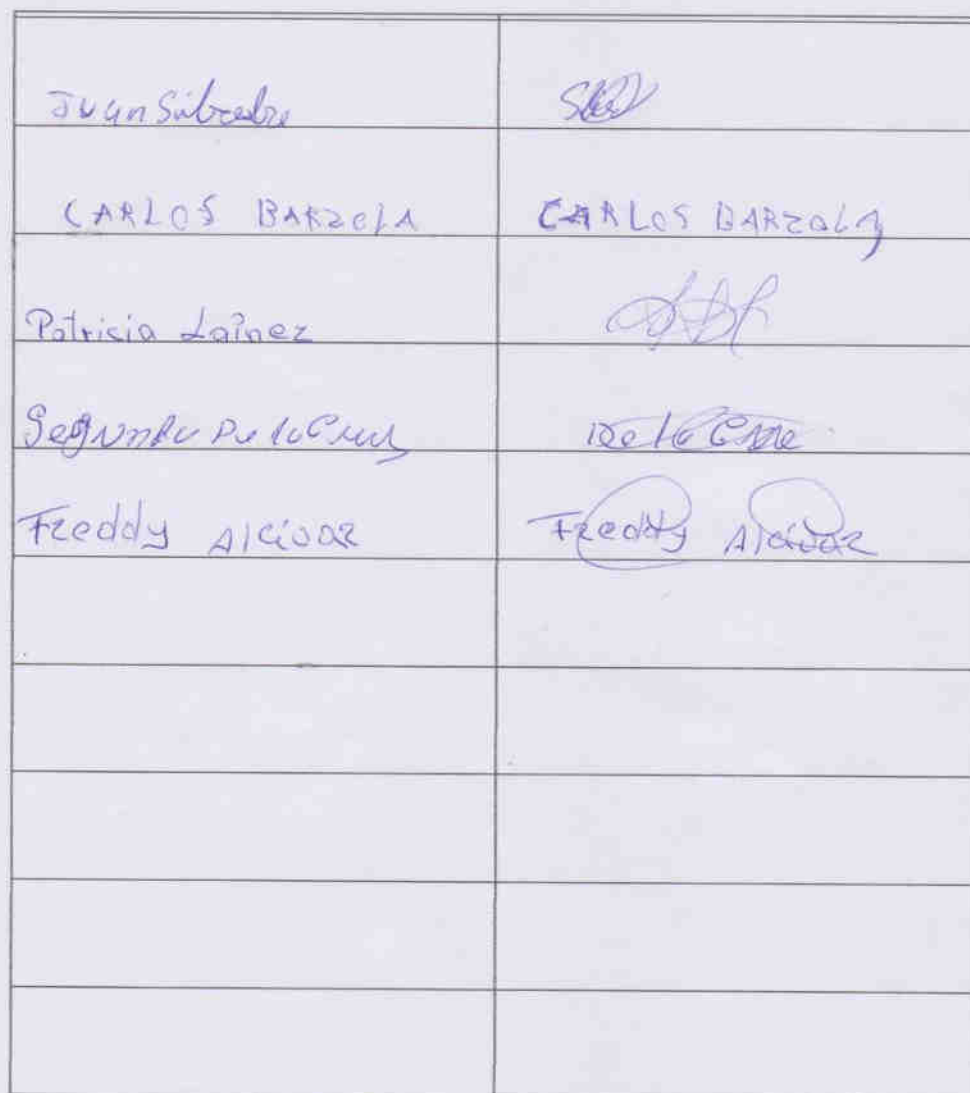 Juan
CARLOS BARZOLA CARLOS BARZOLA
Patricia Laínez
Segundo De la Cruz De la Cruz
Freddy Alcivar Freddy Alcivar